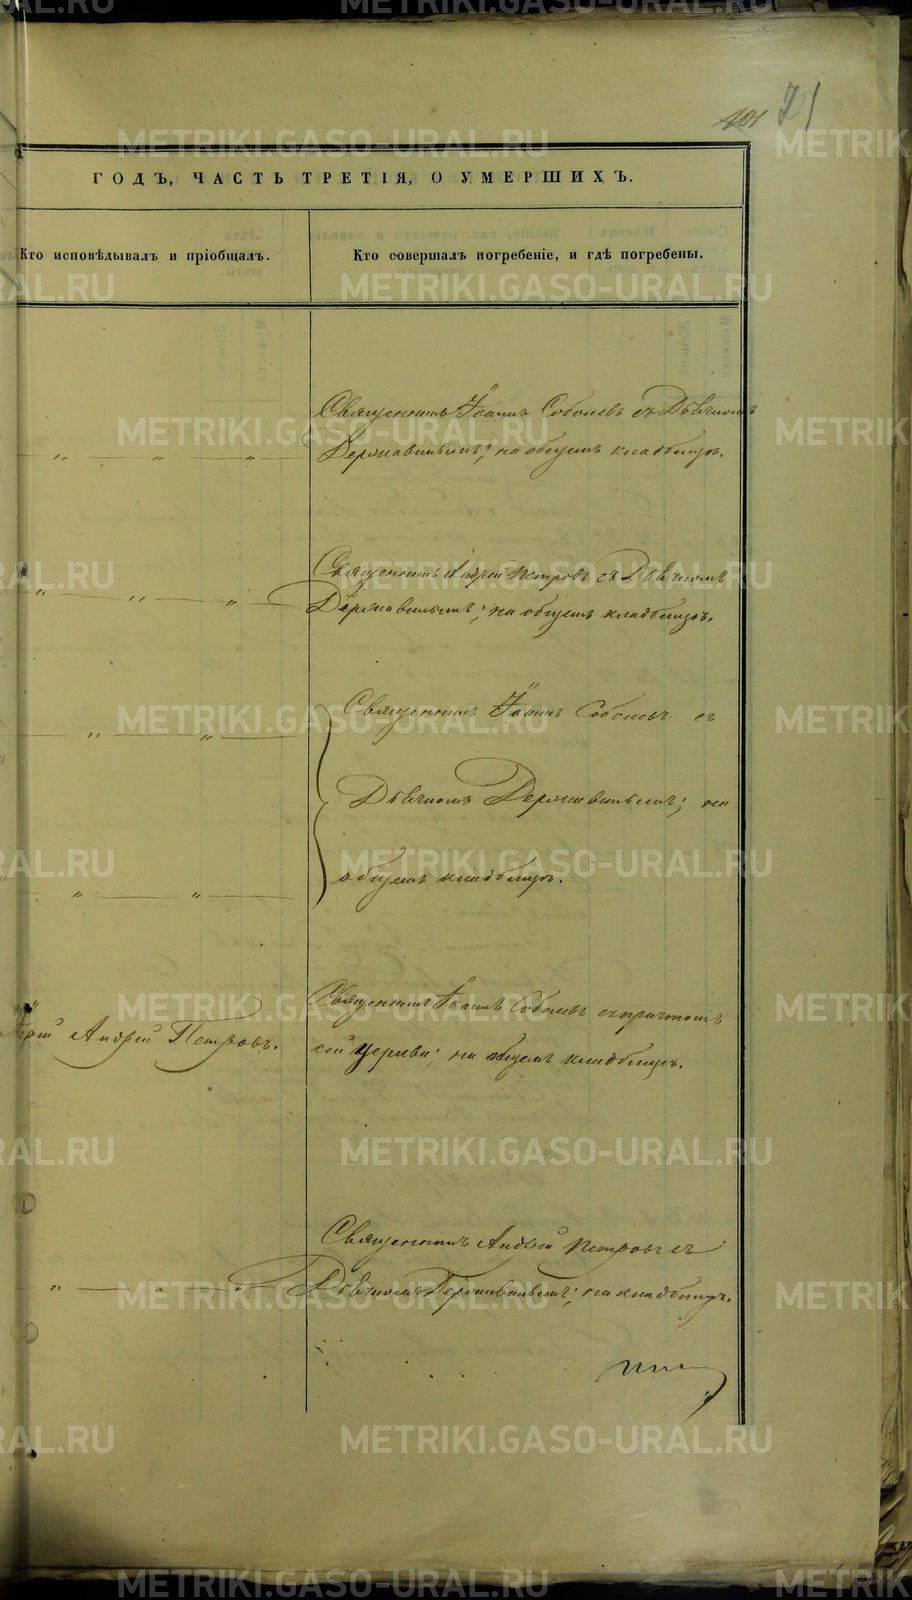 401 71
ГОДЪ, ЧАСТЬ ТРЕТІЯ, О УМЕРШИХЪ.
Кто исповѣдывалъ и пріобщалъ.
Кто совершалъ погребеніе, и гдѣ погребены.
Священникъ Іоаннъ Соболевъ съ Дьячкомъ
Державинымъ; на общемъ кладбищѣ.
Священникъ Андрей Петровъ съ Дьячкомъ
Державинымъ; на общемъ кладбищѣ.
Священникъ Іоаннъ Соболевъ съ
Дьячкомъ Державинымъ; на
общемъ кладбищѣ.
Андрей Петровъ.
Священникъ Іоаннъ Соболевъ съ причтомъ
сей церкви; на общемъ кладбищѣ.
Священникъ Андрей Петровъ съ
Дьячкомъ Державинымъ; на кладбищѣ.
METRIKI.GASO-URAL.RU